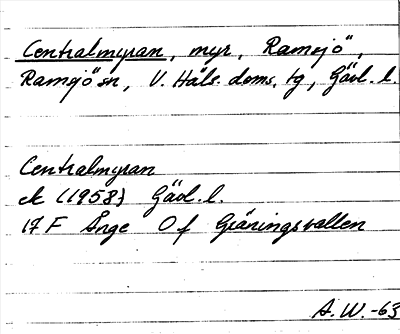 Centralmyran, myr, Ramsjö,
Ramsjö sn, V. Häls. doms. tg, Gävl. l.
Centralmyran
ek (1958) Gävl. l.
17 F Ånge O f Gräningsvallen
A. W. -63